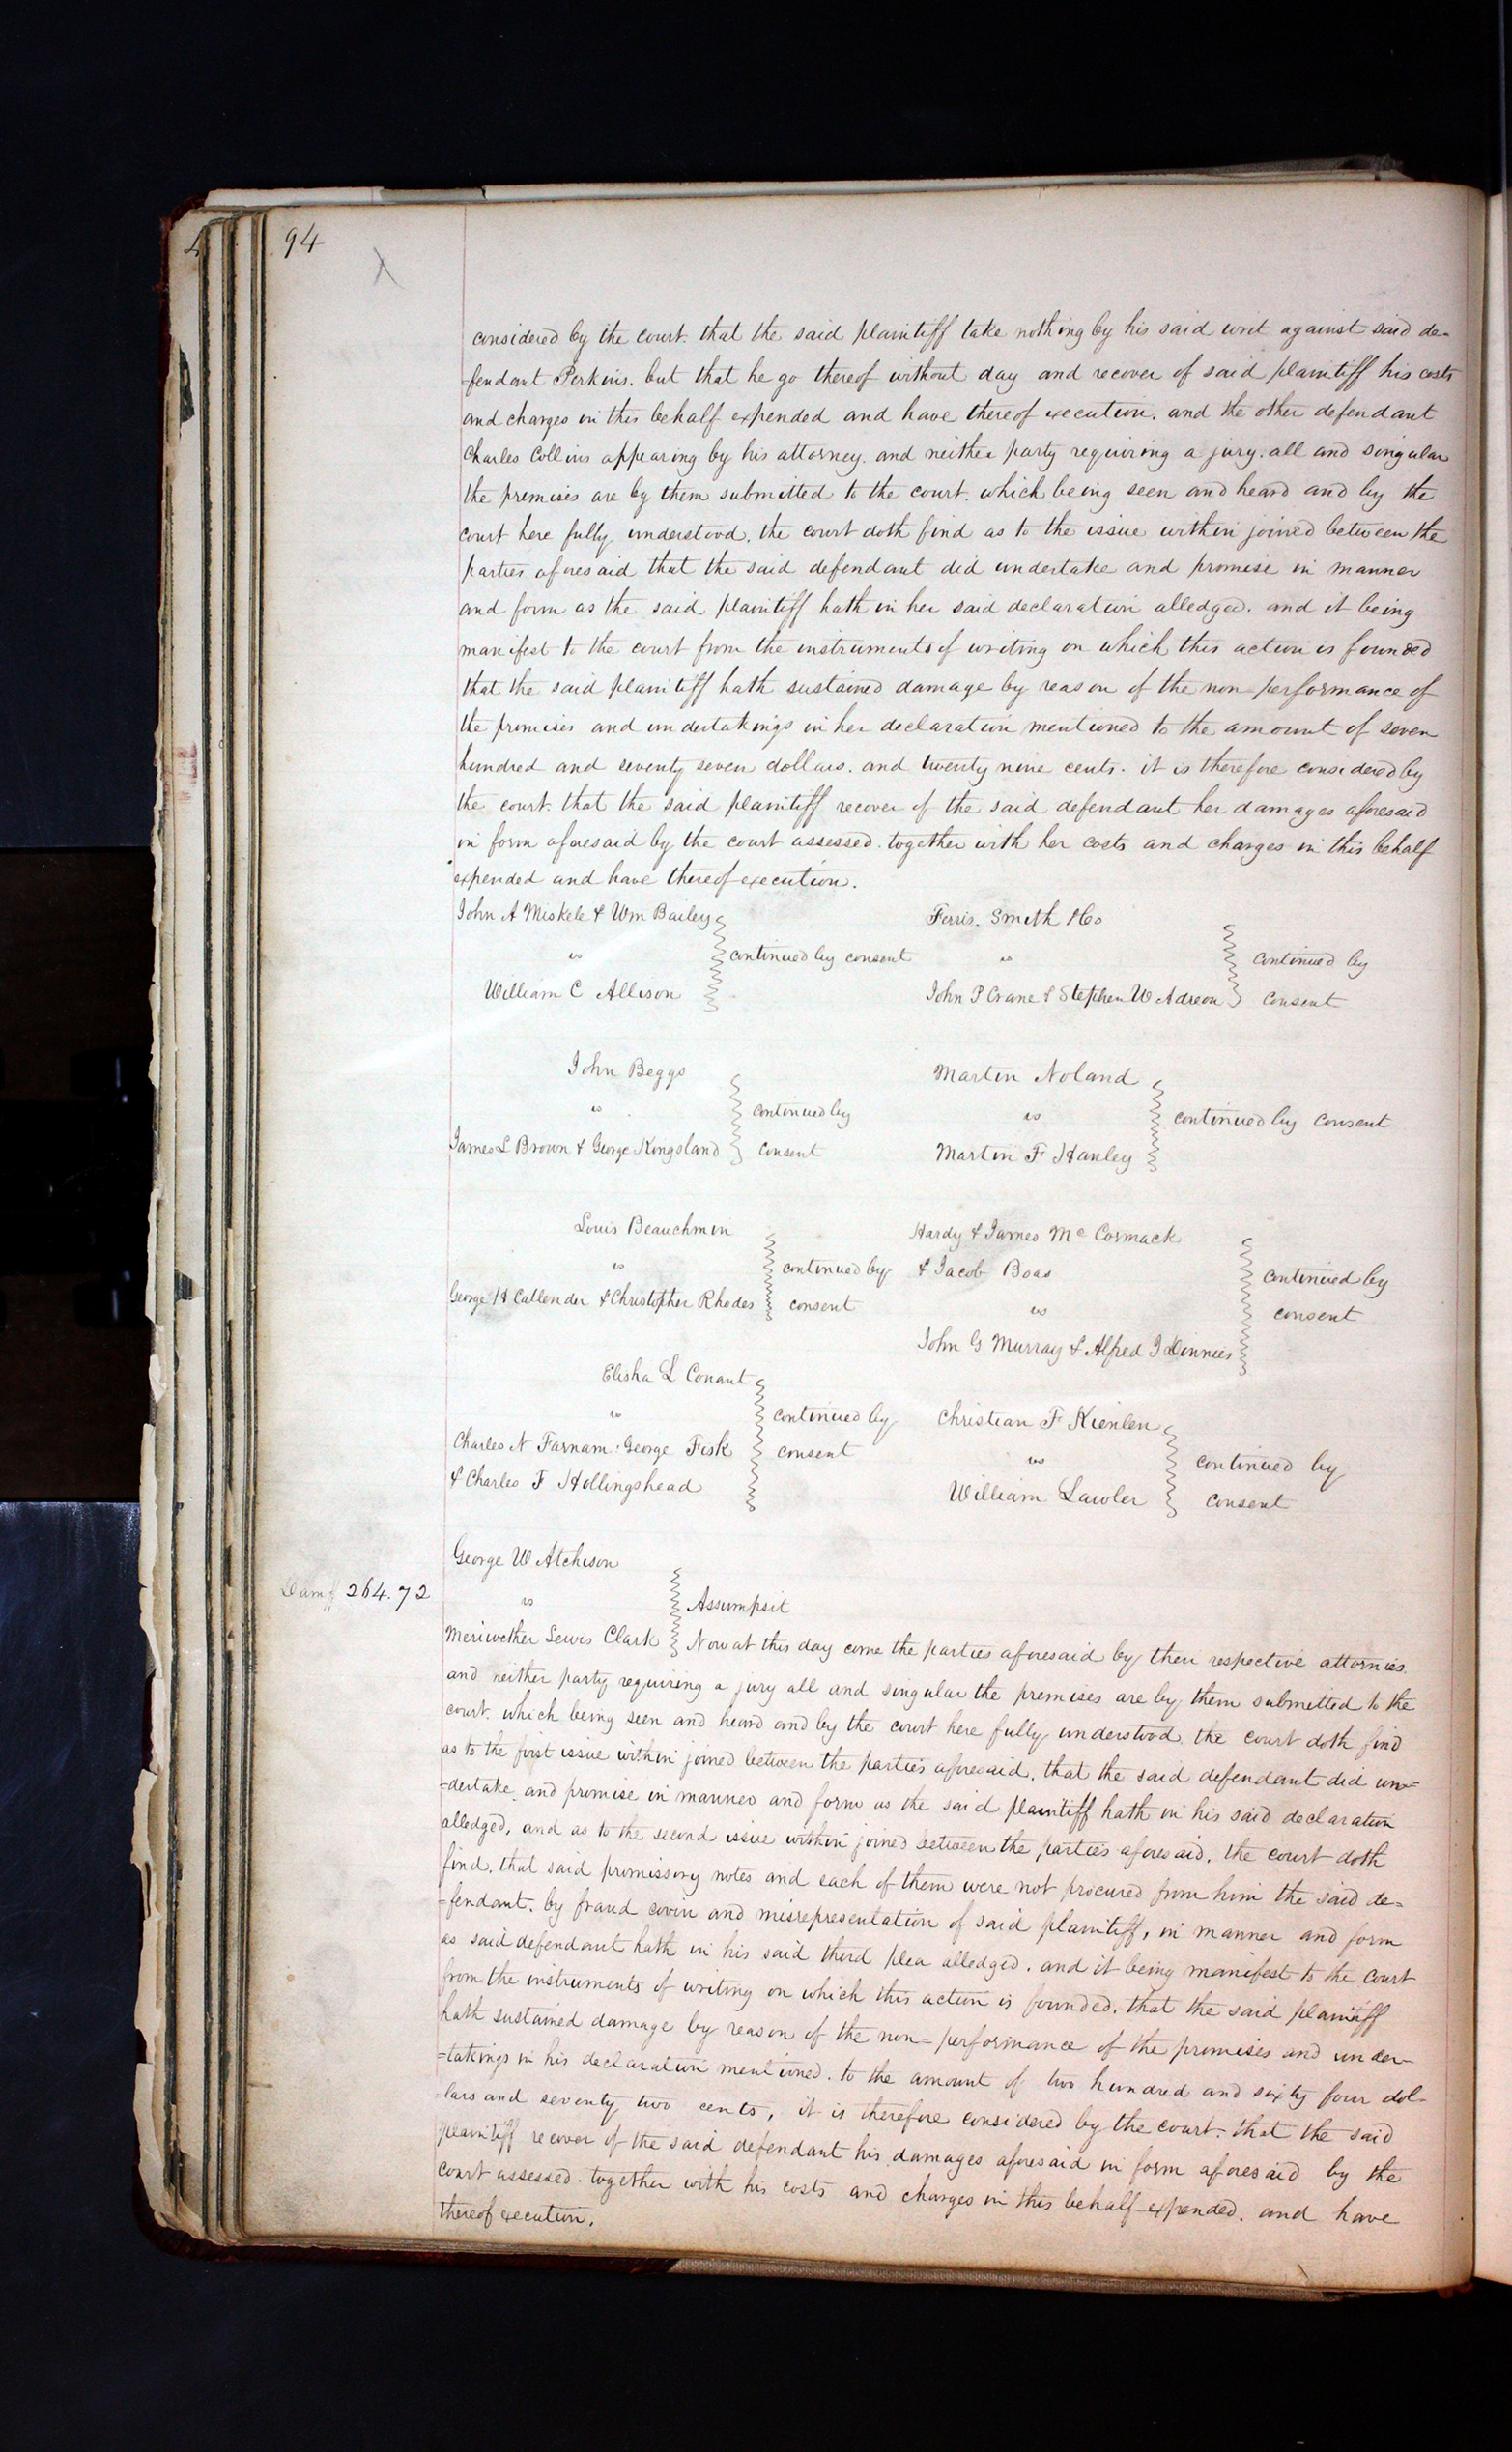 94
considered by the court. that the said plaintiff take nothing by his said writ against said de-
-fendant Perkins. but that he go thereof without day and recover of said plaintiff his costs
and charges in this behalf expended and have thereof execution. and the other defendant
Charles Collins appearing by his attorney. and neither party requiring a jury. all and singular
the premises are by them submitted to the court. which being seen and heard and by the
court here fully understood. the court doth find as to the issue within joined between the
parties aforesaid that the said defendant did undertake and promise in manner
and form as the said plaintiff hath in her said declaration alledged. and it being
manifest to the court from the instruments of writing on which this action is founded
that the said plaintiff hath sustained damage by reason of the non-performance of
the promises and undertakings in her declaration mentioned to the amount of seven
hundred and seventy seven dollars. and twenty nine cents. it is therefore considered by
the court that the said plaintiff recover of the said defendant her damages aforesaid
in form aforesaid by the court assessed. together with her costs and charges in this behalf
expended and have thereof execution.
John A Miskele & Wm Bailey
vs
William C Allison
continued by consent
Ferris. Smith & Co
vs
John P Crane & Stephen W Adreon
continued by
consent
John Beggs
vs
James L Brown & George Kingsland
continued by
consent
Martin Noland
vs
Martin F Hanley
continued by consent
Louis Beauchmin
vs
George H Callender & Christopher Rhodes
continued by
consent
Hardy & James Mc Cormack
& Jacob Boas
vs
John G Murray & Alfred J Dinnies
continued by
consent
Elisha L Conant
vs
Charles N Farnam: George Fisk
& Charles F Hollingshead
continued by
consent
Christian F Kienlen
vs
William Lawler
continued by
consent
George W Atchison
Damgs 264.72
vs
Assumpsit
Meriwether Lewis Clark
Now at this day come the parties aforesaid by their respective attornies.
and neither party requiring a jury all and singular the premises are by them submitted to the
court. which being seen and heard and by the court here fully understood. the court doth find
as to the first issue within joined between the parties aforesaid. that the said defendant did un=
=dertake and promise in manner and form as the said plaintiff hath in his said declaration
alledged, and as to the second issue within joined between the parties aforesaid. the court doth
find, that said promissory notes and each of them were not procured from him the said de=
=fendant. by fraud covin and misrepresentation of said plaintiff, in manner and form
as said defendant hath in his said third plea alledged. and it being manifest to the court
from the instruments of writing on which this action is founded. that the said plaintiff
hath sustained damage by reason of the non=performance of the promises and under-
=takings in his declaration mentioned. to the amount of two hundred and sixty four dol-
-lars and seventy two cents, it is therefore considered by the court. that the said
plaintiff recover of the said defendant his damages aforesaid in form aforesaid by the
court assessed. together with his costs and charges in this behalf expended. and have
thereof execution.